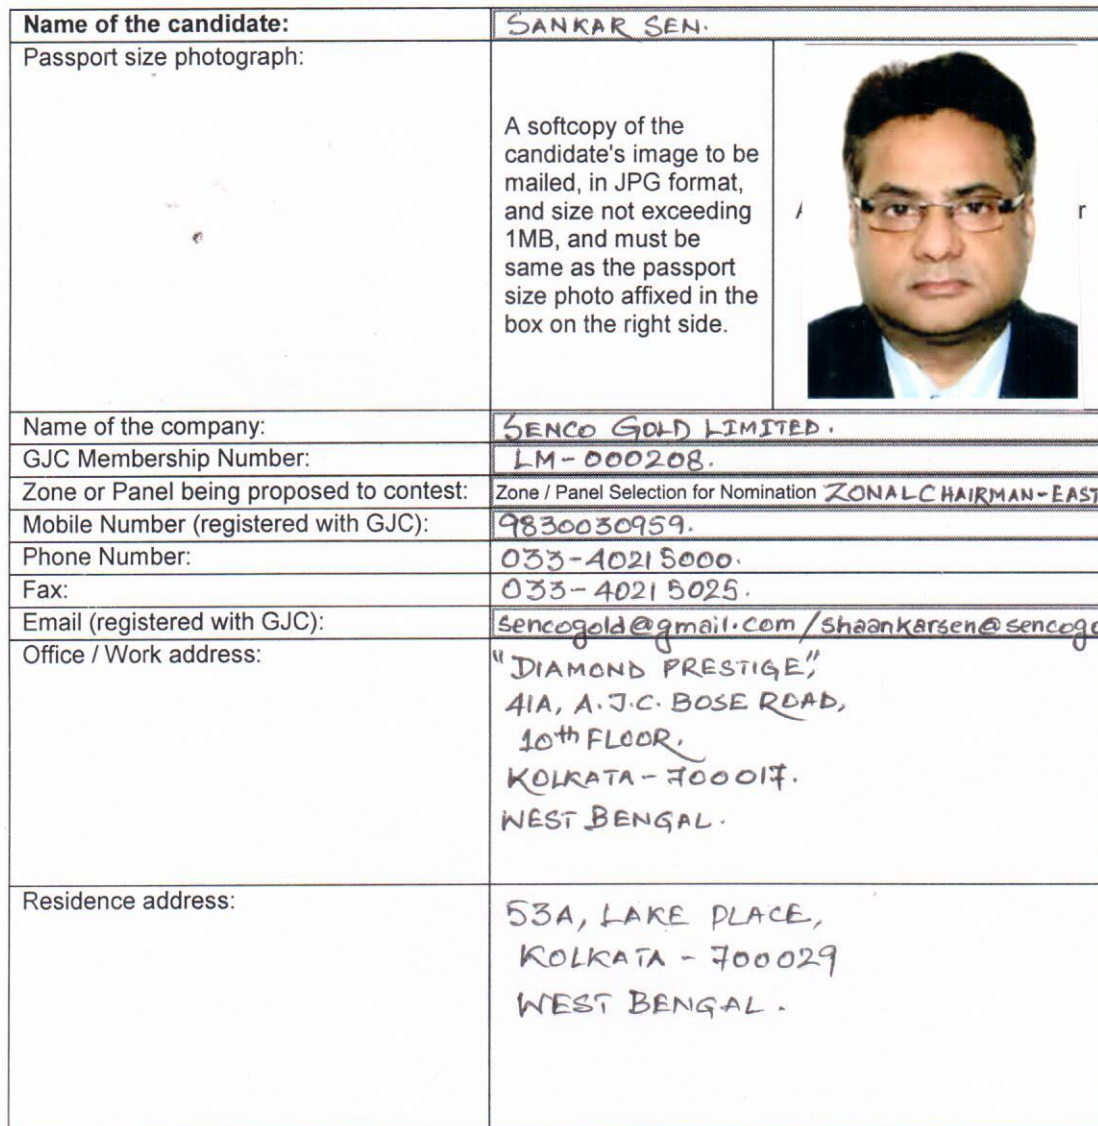 Name of the candidate: SANKAR SEN.
Passport size photograph:
A softcopy of the
candidate's image to be
mailed, in JPG format,
and size not exceeding
1MB, and must be
same as the passport
size photo affixed in the
box on the right side.
Name of the company: SENCO GOLD LIMITED.
GJC Membership Number: LM-000208.
Zone or Panel being proposed to contest: Zone / Panel Selection for Nomination ZONAL CHAIRMAN-EAST
Mobile Number (registered with GJC): 9830030959.
Phone Number: 033-40215000.
Fax: 033-40215025.
Email (registered with GJC): sencogold@gmail.com / shaankarsen@sencogo
Office / Work address: "DIAMOND PRESTIGE",
41A, A.J.C. BOSE ROAD,
10th FLOOR.
KOLKATA - 700017.
WEST BENGAL.
Residence address: 53A, LAKE PLACE,
KOLKATA - 700029
WEST BENGAL.